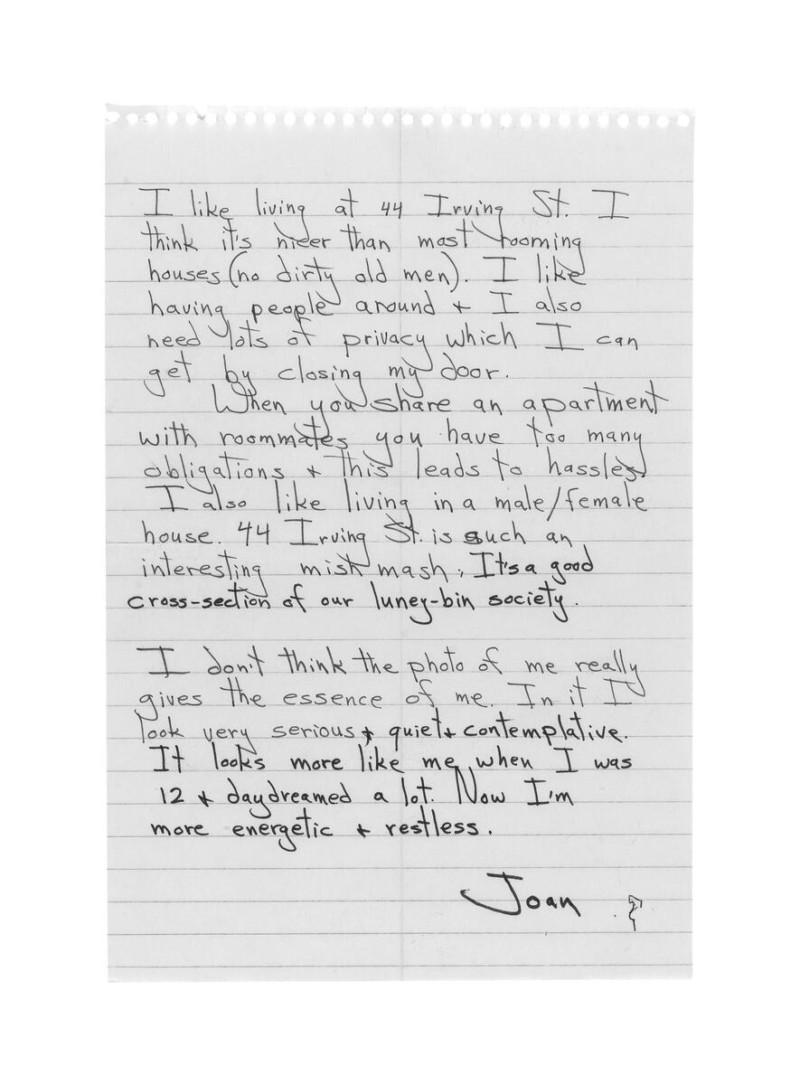 I like living at 44 Irving St. I
think it's nicer than most rooming
houses (no dirty old men). I like
having people around + I also
need lots of privacy which I can
get by closing my door.
When you share an apartment
with roommates you have too many
obligations + this leads to hassles.
I also like living in a male/female
house. 44 Irving St. is such an
interesting mish mash. It's a good
cross-section of our luney-bin society.
I don't think the photo of me really
gives the essence of me. In it I
look very serious + quiet + contemplative.
It looks more like me when I was
12 + daydreamed a lot. Now I'm
more energetic + restless.
Joan